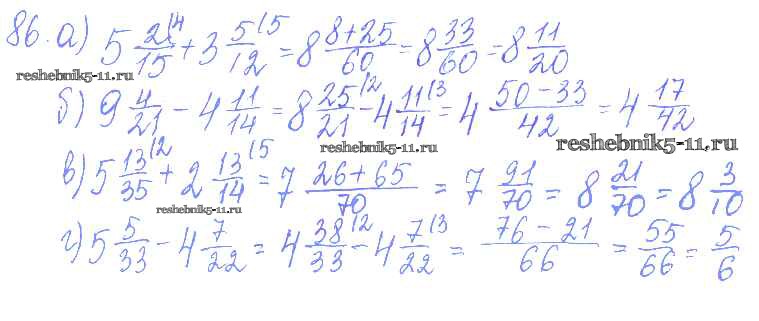 86. а) 5 2/15 (4 + 3 5/12 (5 = 8 (8+25)/60 = 8 33/60 = 8 11/20
reshebnik5-11.ru
б) 9 4/21 − 4 11/14 = 8 25/21 (2 − 4 11/14 (3 = 4 (50−33)/42 = 4 17/42
reshebnik5-11.ru reshebnik5-11.ru
в) 5 13/35 (2 + 2 13/14 (5 = 7 (26+65)/70 = 7 91/70 = 8 21/70 = 8 3/10
reshebnik5-11.ru
г) 5 5/33 − 4 7/22 = 4 38/33 (2 − 4 7/22 (3 = (76−21)/66 = 55/66 = 5/6